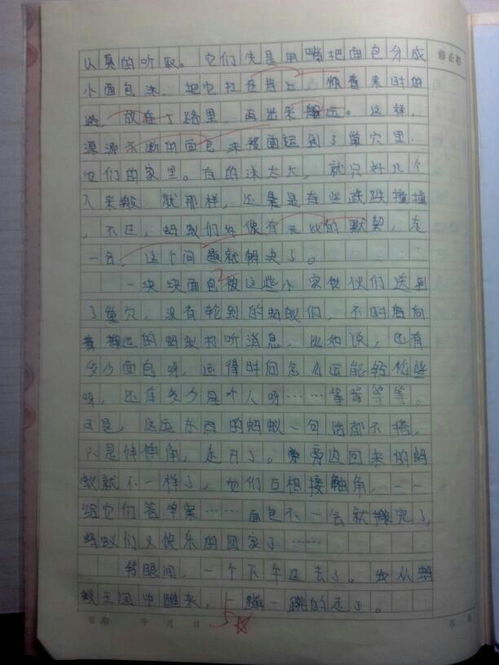 认真的听取。它们先是用嘴把面包分成
小面包末，把它扛在背上，顺着来时的
路，放在了路里，再出来搬运。这样，
源源不断的面包末被面运到了巢穴里，
它们的家里。有的沫太大，就只好几个
人来搬，就那样，还是是有些跌跌撞撞
，不过，蚂蚁们好像有无比的默契，左
一会，这个问题就解决了。
一块块面包被这些小家伙们送到
了巢穴，没有轮到的蚂蚁们，不时的向
着搬运的蚂蚁打听消息，比如说，还有
多少面包呀，运得时间怎么还能轻松些
呀，还有多少是个人呀……等等等等。
可是，运东西的蚂蚁一句话都不搭，
只是伸伸角，走开了。旁边回来的蚂
蚁就不一样了，他们互相接触角，一一
给它们答答案……面包不一会就搬完了，
蚂蚁们又快乐的回家了……
转眼间，一个下午过去了。我从蚂
蚁王国中醒来，一蹦一跳的走了。
日期 年 月 日